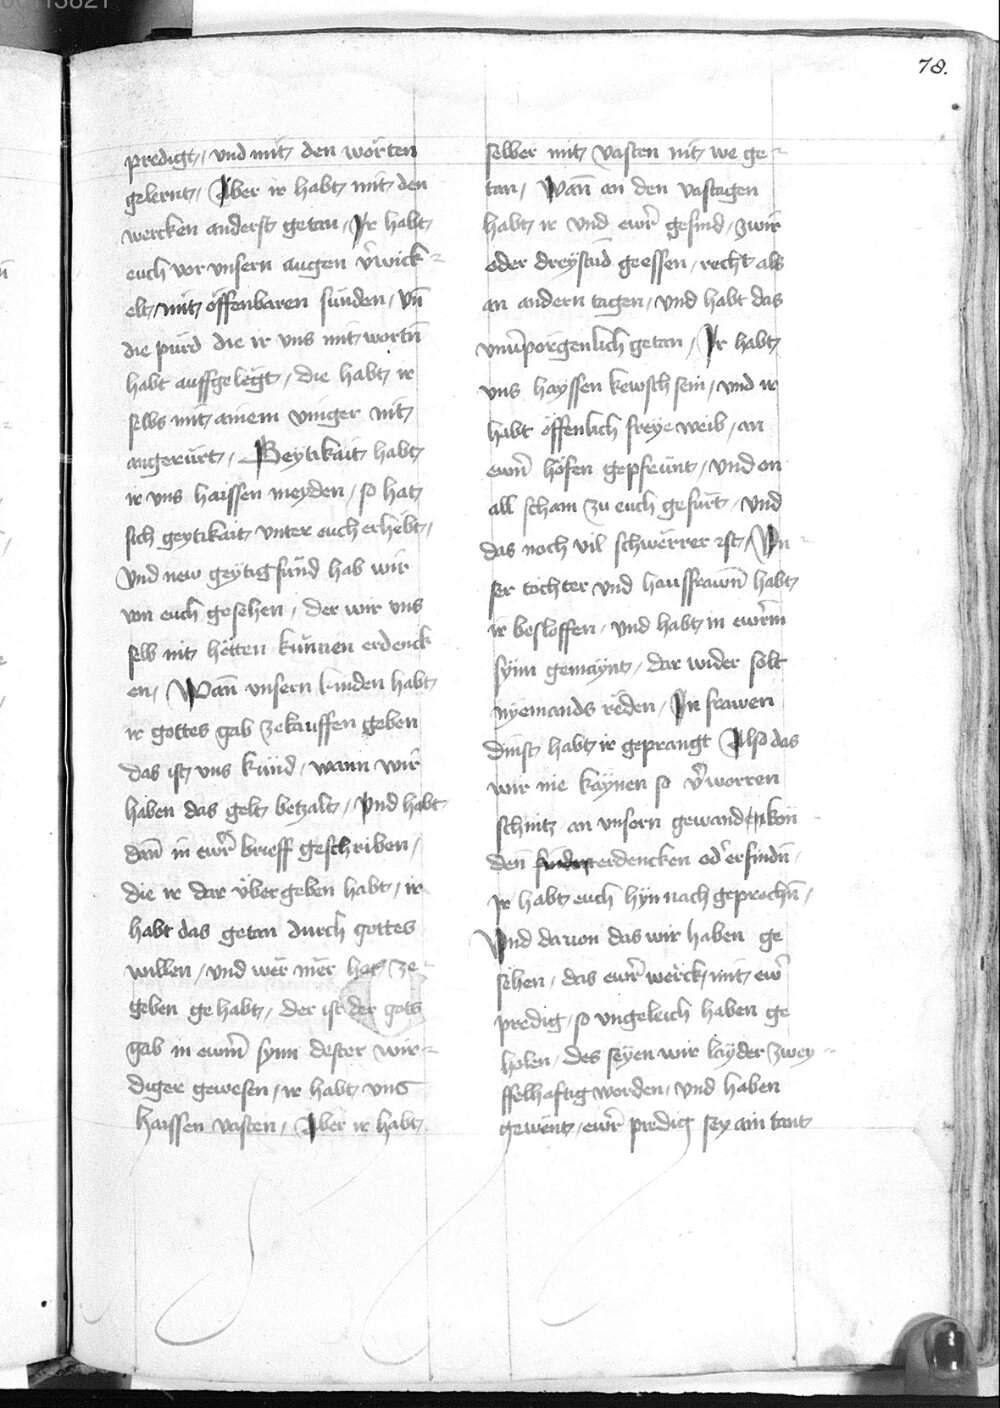 78.
predigt / vnd mit den worten
gelernt / Aber ir habt mit den
wercken anderst getan / Ir habt
euch vor vnsern augen v̾wick-
elt / mit öffenbaren sünden / vn̄
die pürd die ir vns mit wortn̄
habt auffgelegt / die habt ir
selbs mit ainem vinger nit
angerürt / Geytikait habt
ir vns haissen meyden / so hat
sich geytikait vnter euch erhebt /
Vnd new geytig fünd hab wir
von euch gesehen / der wir vns
selb nit hetten künnen erdenck
en / Wan̄ vnsern kinden habt
ir gottes gab zekauffen geben
das ist vns kund / wann wir
haben das gelt betzalt / Vnd habt
dan̄ in ewr̄ brieff geschriben /
die ir dar über geben habt / ir
habt das getan durch gottes
willen / vnd wer mer hat ze-
geben gehabt / der ist der gots
gab in ewrm̄ synn dester wir-
diger gewesen / ir habt vns
haissen vasten / Aber ir habt
selber mit vasten nit we ge-
tan / Wan̄ an den vastagen
habt ir vnd ewr̄ gesind / zwir
oder dreystūd geessen / recht als
an andern tagen / vnd habt das
vnu̾porgenlich getan / Ir habt
vns hayssen kewsch sein / vnd ir
habt öffenlich freye weib / an
ewrn̄ höfen gepfrünt / vnd on
all scham zu euch gefürt / vnd
das noch vil schwerrer ist / Vn-
ser tochter vnd haussfrawn̄ habt
ir besloffen / vnd habt in ewrm̄
synn gemaynt / dar wider solt
nyemands reden / In frawen
dinst habt ir geprangt Also das
wir nie kaynen so v̾worren
schnitz an vnsern gewanden kön
den erdencken od̾ erfindn̄ /
ir habt euch hyn nach geprochn̄ /
Vnd daruon das wir haben ge
sehen / das ewr̄ werck / mit ewr̄
predig / so vngeleich haben ge
holen / des seyen wir layder zwey-
ffelhaftig worden / vnd haben
gewent / ewr̄ predig sey ain tant